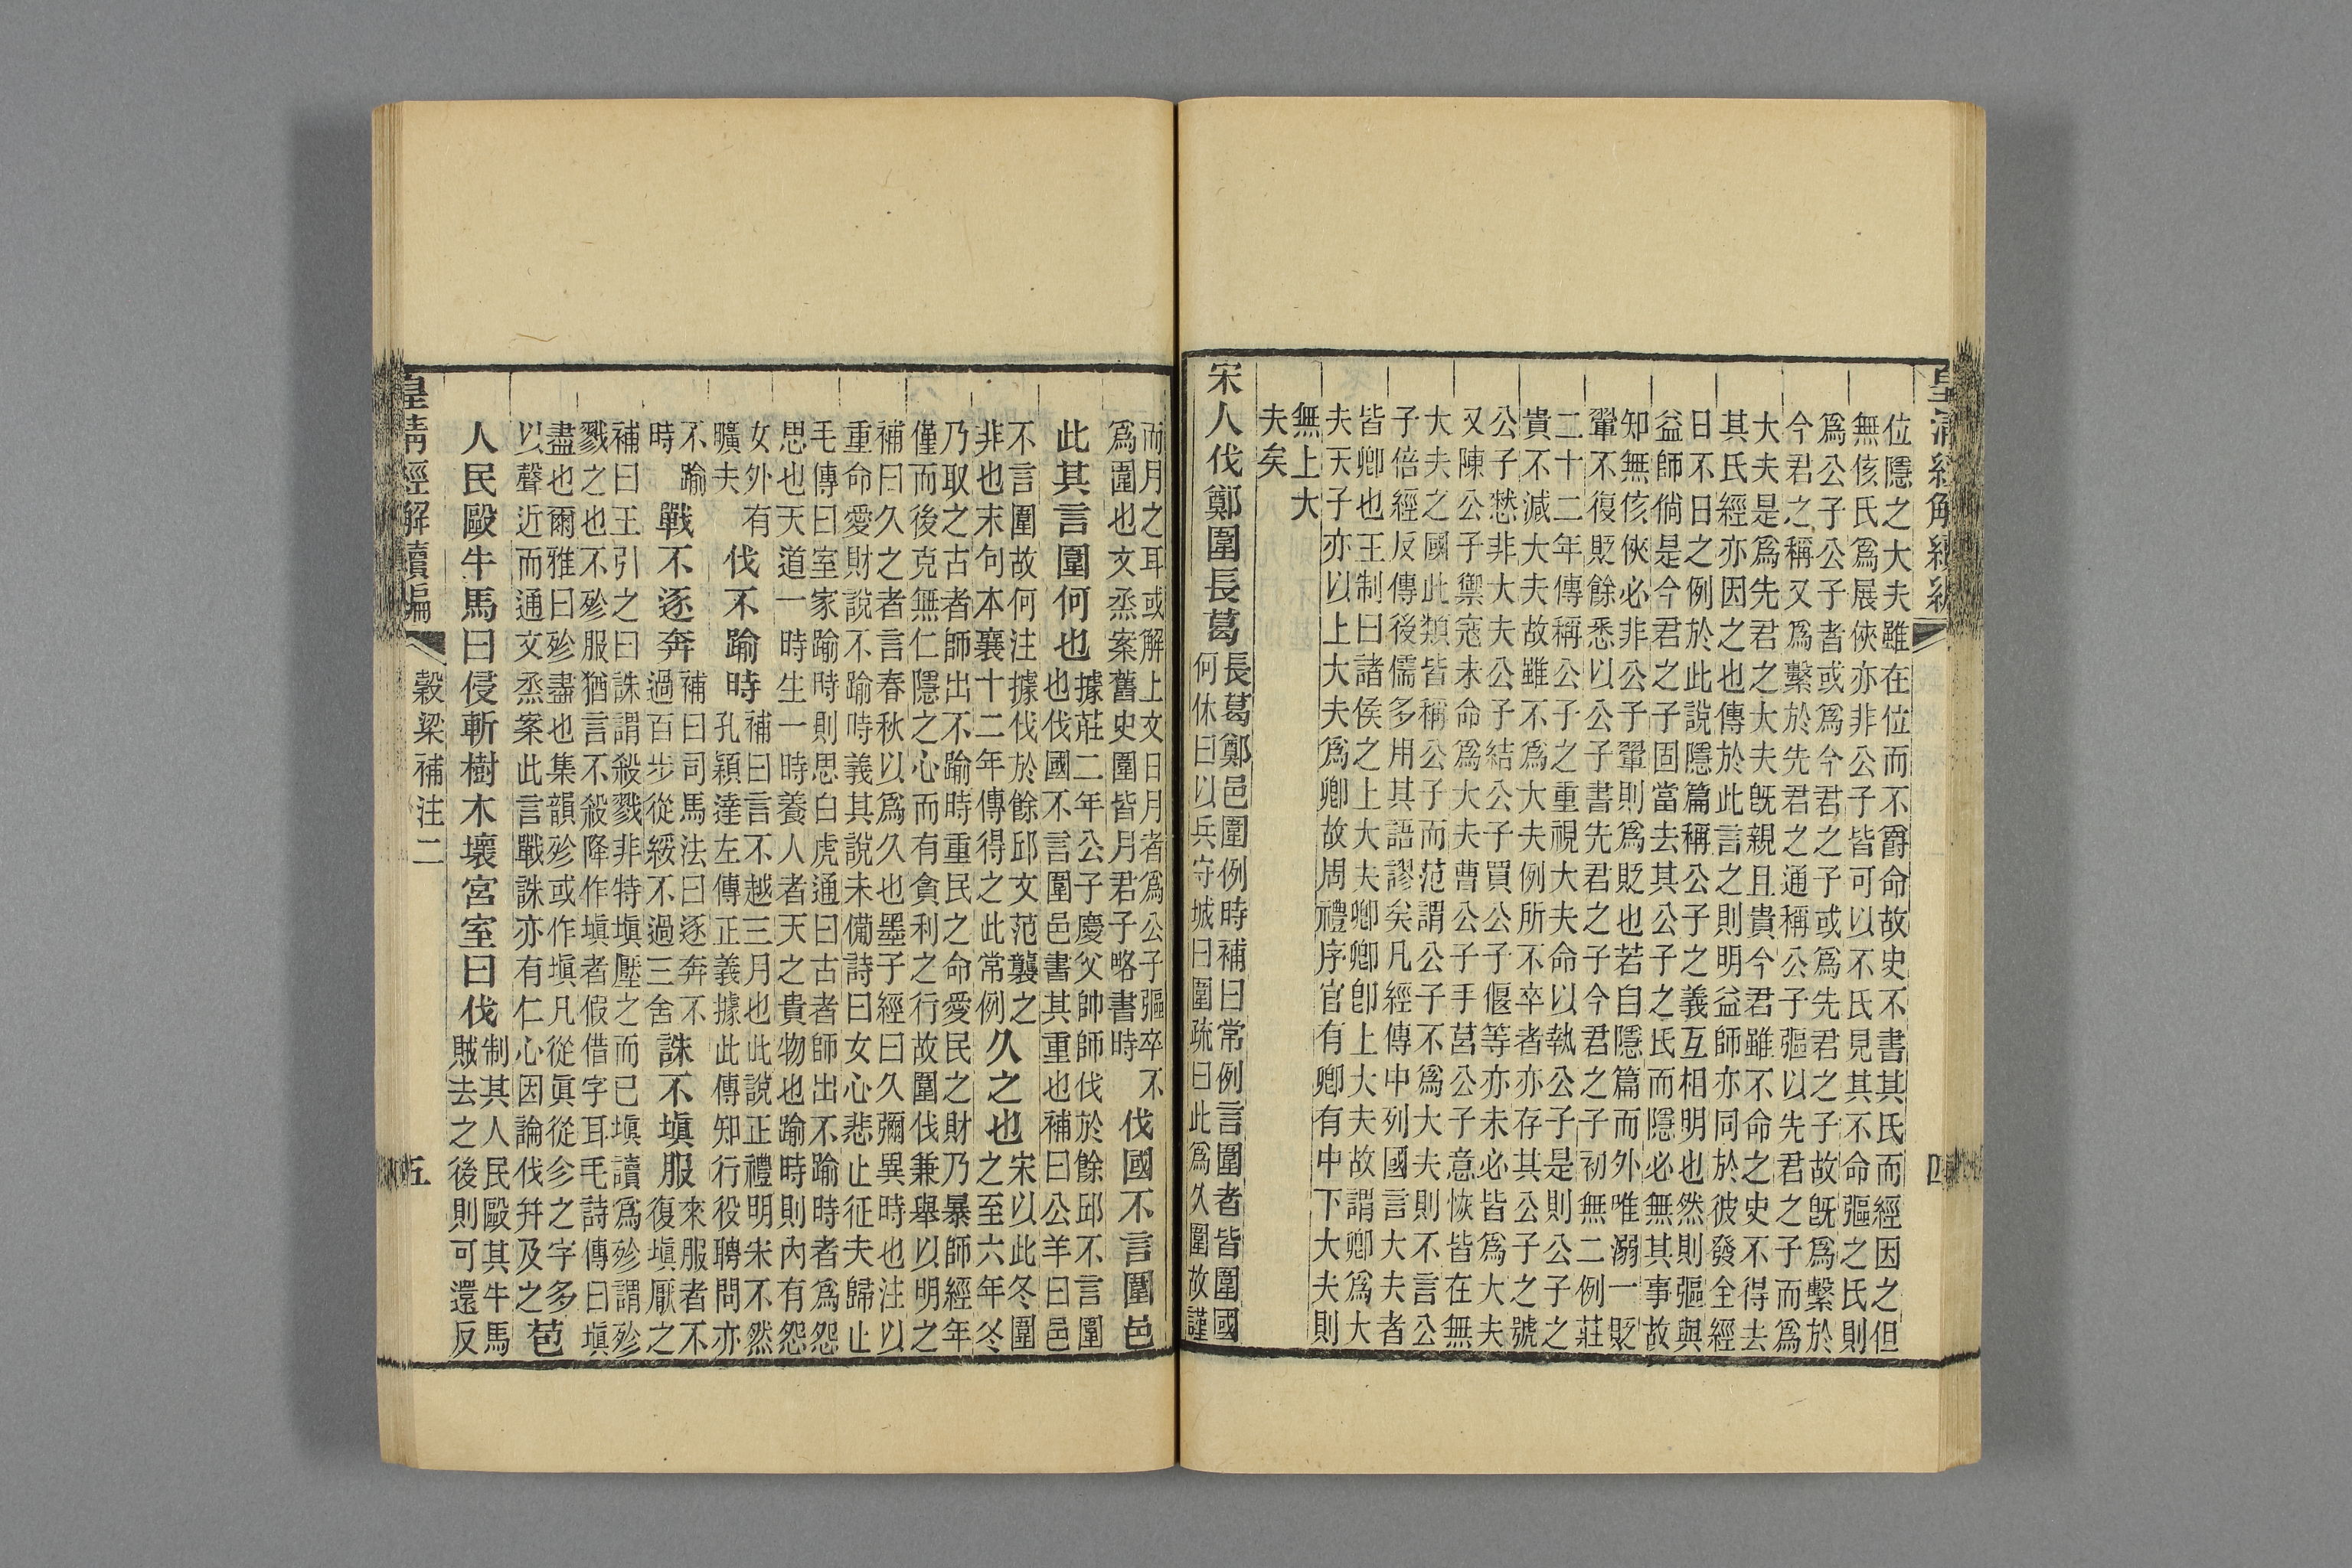 皇清經解續編
四
位隱之大夫雖在位而不爵命故史不書其氏而經因之但
無侅氏爲展俠亦非公子皆可以不氏見其不命彄之氏則
爲公子公子者或爲今君之子或爲先君之子故旣爲繫於
今君之稱又爲繫於先君之通稱公子彄以先君之子而爲
大夫是爲先君之大夫旣親且貴今君雖不命之史不得去
其氏經亦因之也傳於此言之則明益師亦同於彼發全經
日不日之例於此說隱篇稱公子之義互相明也然則彄與
益師倘是今君之子固當去其公子之氏而隱必無其事故
知無侅俠必非公子翬則爲貶也若自隱篇而外唯溺一貶
翬不復貶餘悉以公子書先君之子今君之子初無二例莊
二十二年傳稱公子之重視大夫命以執公子是則公子之
貴不減大夫故雖不爲大夫例所不卒者亦存其公子之號
公子慭非大夫公子結公子買公子偃等亦未必皆爲大夫
又陳公子禦寇未命爲大夫曹公子手莒公子意恢皆在無
大夫之國此類皆稱公子而范謂公子不爲大夫則不言公
子倍經反傳後儒多用其語謬矣凡經傳中列國言大夫者
皆卿也王制曰諸侯之上大夫卿卿卽上大夫故謂卿爲大
夫天子亦以上大夫爲卿故周禮序官有卿有中下大夫則
無上大
夫矣
宋人伐鄭圍長葛
長葛鄭邑圍例時補曰常例言圍者皆圍國
何休曰以兵守城曰圍疏曰此爲久圍故謹
而月之耳或解上文日月者爲公子彄卒不
爲圍也文烝案舊史圍皆月君子略書時
伐國不言圍邑
此其言圍何也
據莊二年公子慶父帥師伐於餘邱不言圍
也伐國不言圍邑書其重也補曰公羊曰邑
不言圍故何注據伐於餘邱文范襲之
非也末句本襄十二年傳得之此常例
久之也
宋以此冬圍
之至六年冬
乃取之古者師出不踰時重民之命愛民之財乃暴師經年
僅而後克無仁隱之心而有貪利之行故圍伐兼舉以明之
補曰久之者言春秋以爲久也墨子經曰久彌異時也注以
重命愛財說不踰時義其說未備詩曰女心悲止征夫歸止
毛傳曰室家踰時則思白虎通曰古者師出不踰時者爲怨
思也天道一時生一時養人者天之貴物也踰時則內有怨
女外有
曠夫
伐不踰時
補曰言不越三月也此說正禮明宋不然
孔穎達左傳正義據此傳知行役聘問亦
不踰
時
戰不逐奔
補曰司馬法曰逐奔不
過百步從綏不過三舍
誅不塡服
來服者不
復塡厭之
補曰王引之曰誅謂殺戮非特塡壓之而已塡讀爲殄謂殄
戮之也不殄服猶言不殺降作塡者假借字耳毛詩傳曰塡
盡也爾雅曰殄盡也集韻殄或作塡凡從眞從㐱之字多
以聲近而通文烝案此言戰誅亦有仁心因論伐幷及之
苞
人民毆牛馬曰侵斬樹木壞宮室曰伐
制其人民毆其牛馬
賊去之後則可還反
皇清經解續編
穀梁補注二
五